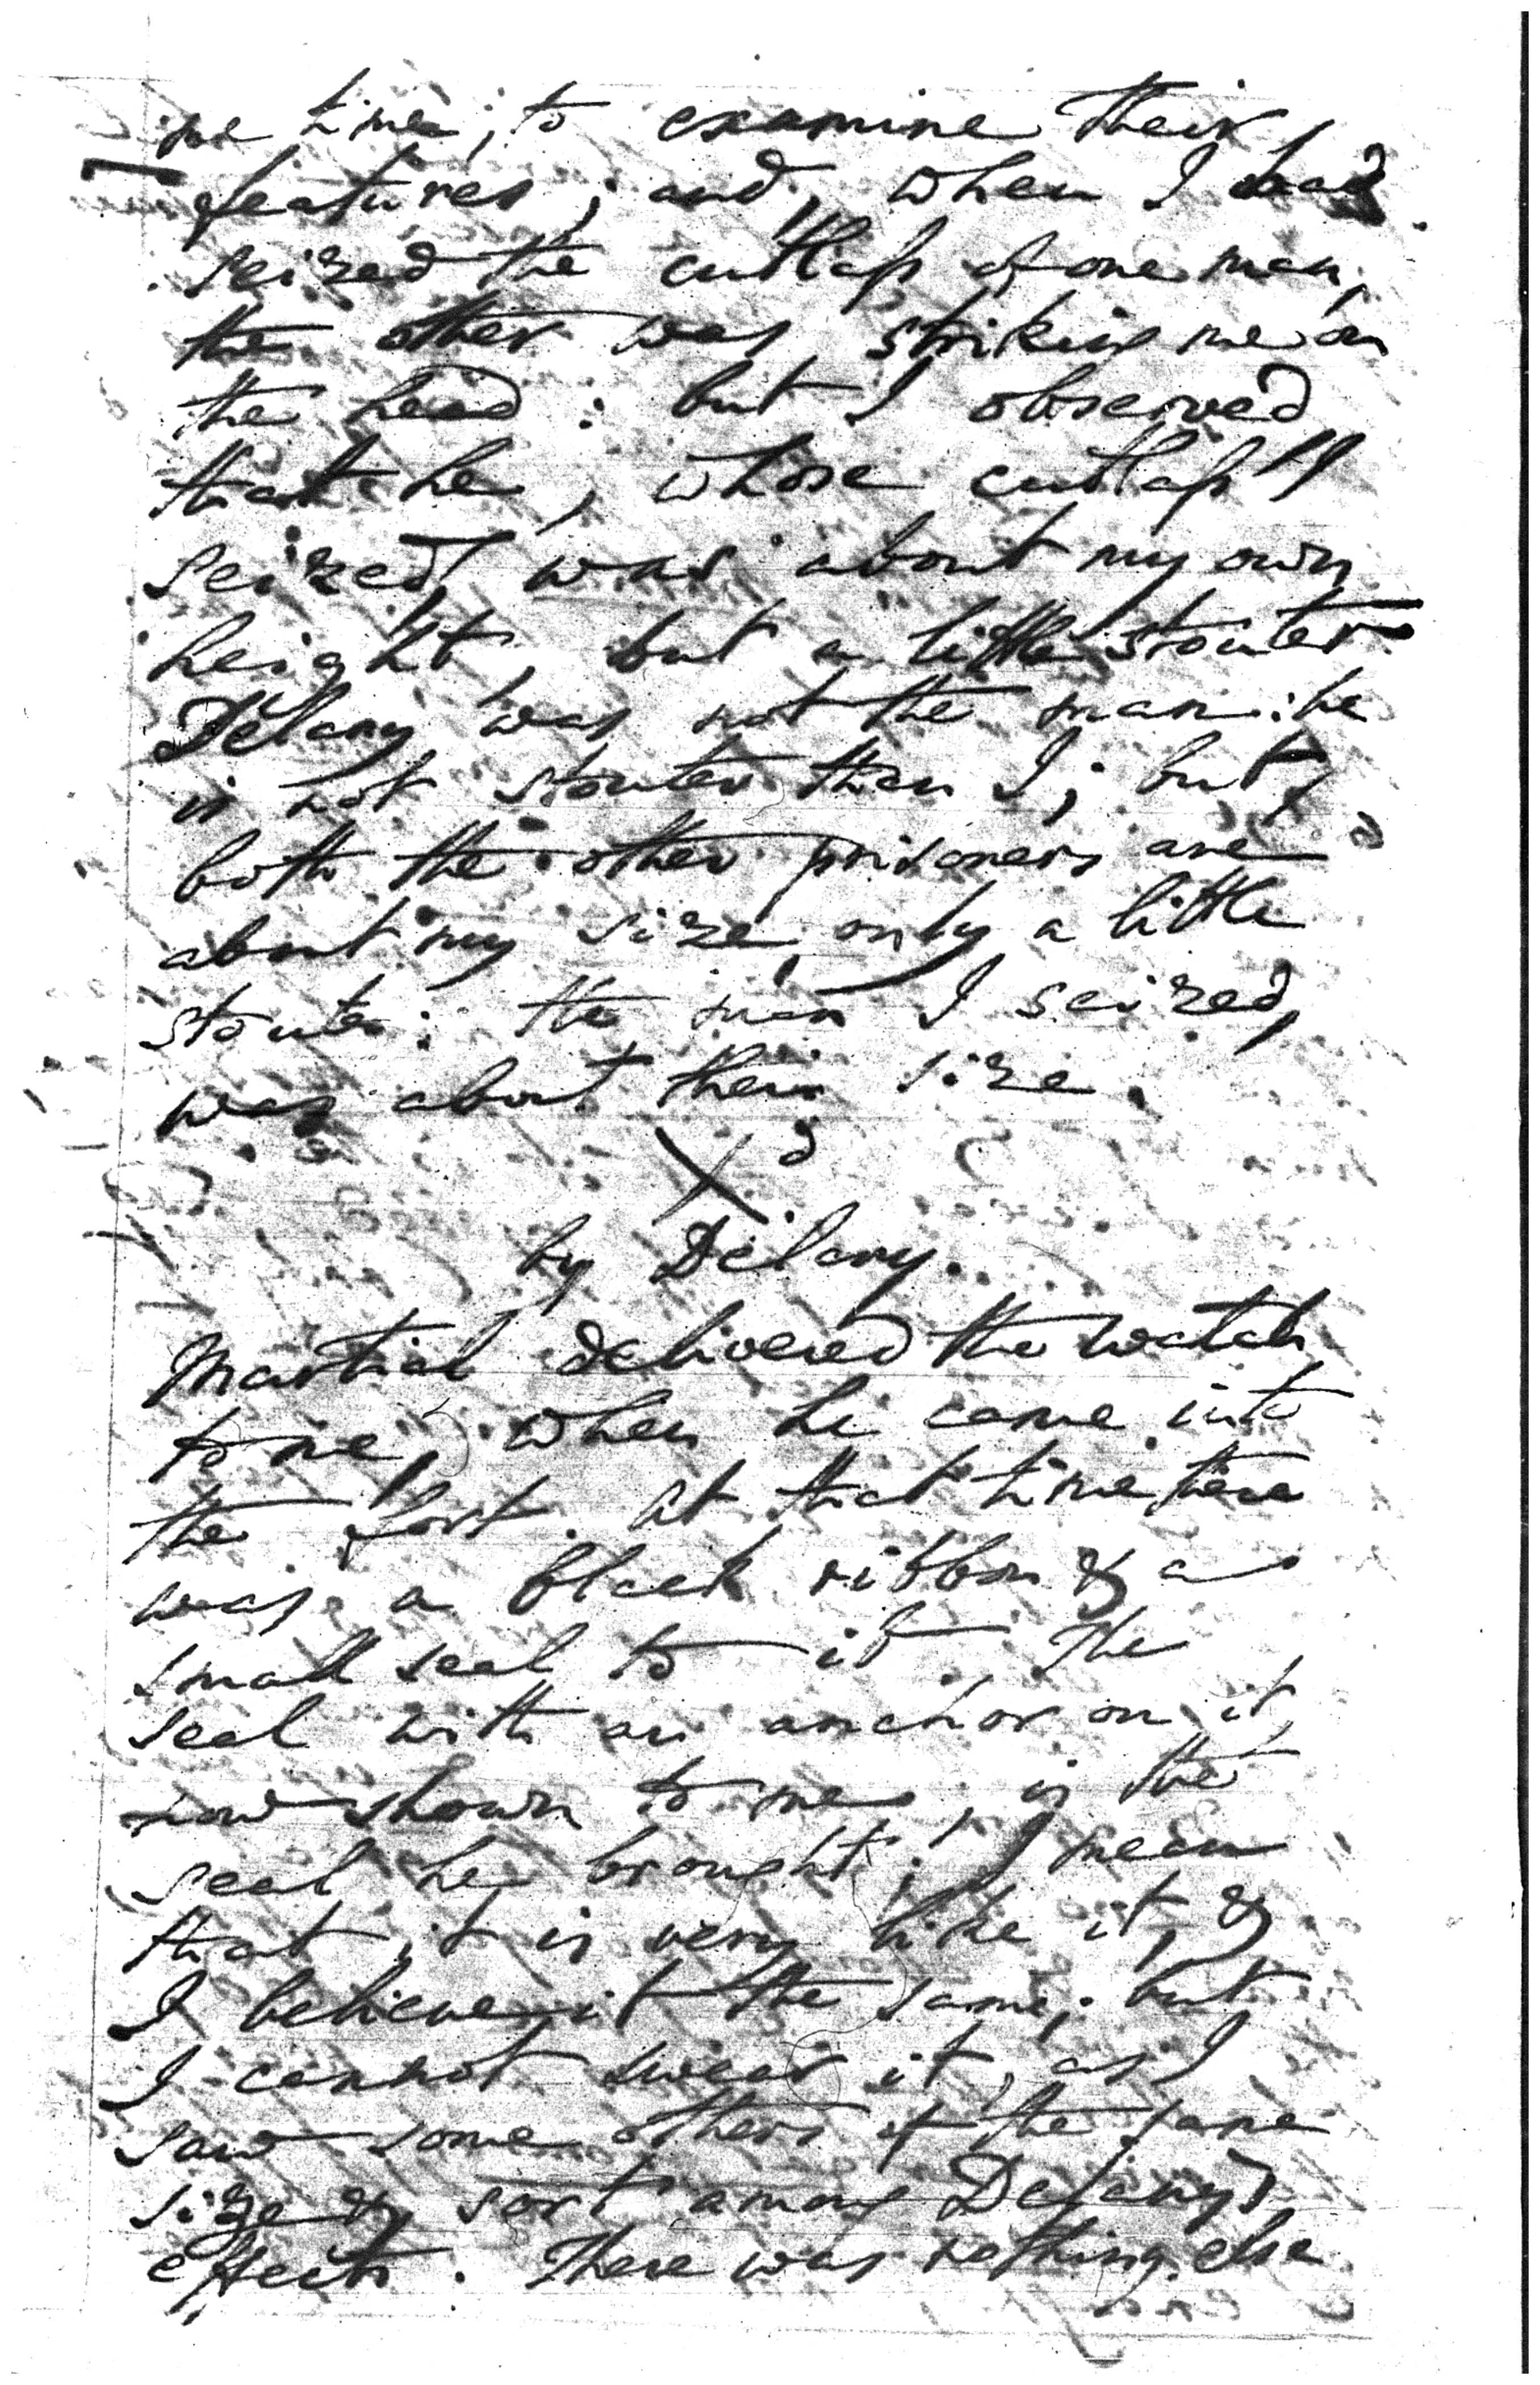 me time, to examine their
features; and, when I had
seized the cutlaſs of one man,
the other was striking me on
the head: but I observed
that he, whose cutlaſs I
seized, was about my own
height, but a little stouter.
Delany was not the man: he
is not stouter than I; but,
both the other prisoners are
about my size, only a little
stouter: the man I seized,
was about their size.
Xd
by Delany.
Martial delivered the watch
to me, when he came into
the fort. At that time there
was a black ribbon & a
small seal to it. The
seal with an anchor on it,
now shown to me, is the
seal he brought; I mean
that it is very like it, &
I believe it the same; but
I cannot swear it, as I
saw some others of the same
size & sort among Delany's
effects. There was nothing else